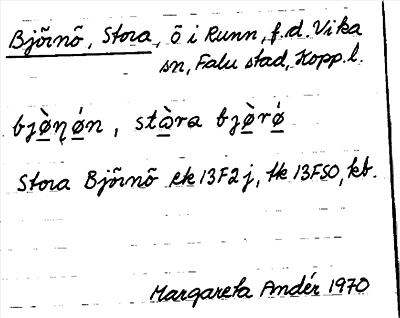 Björnö, Stora, ö i Runn, f.d. Vika
sn, Falu stad, Kopp.l.
bjø̀ṇǿn, stà̱ra bjø̀rǿ
Stora Björnö ek 13F2j, tk 13FSO, kb.
Margareta Andér 1970